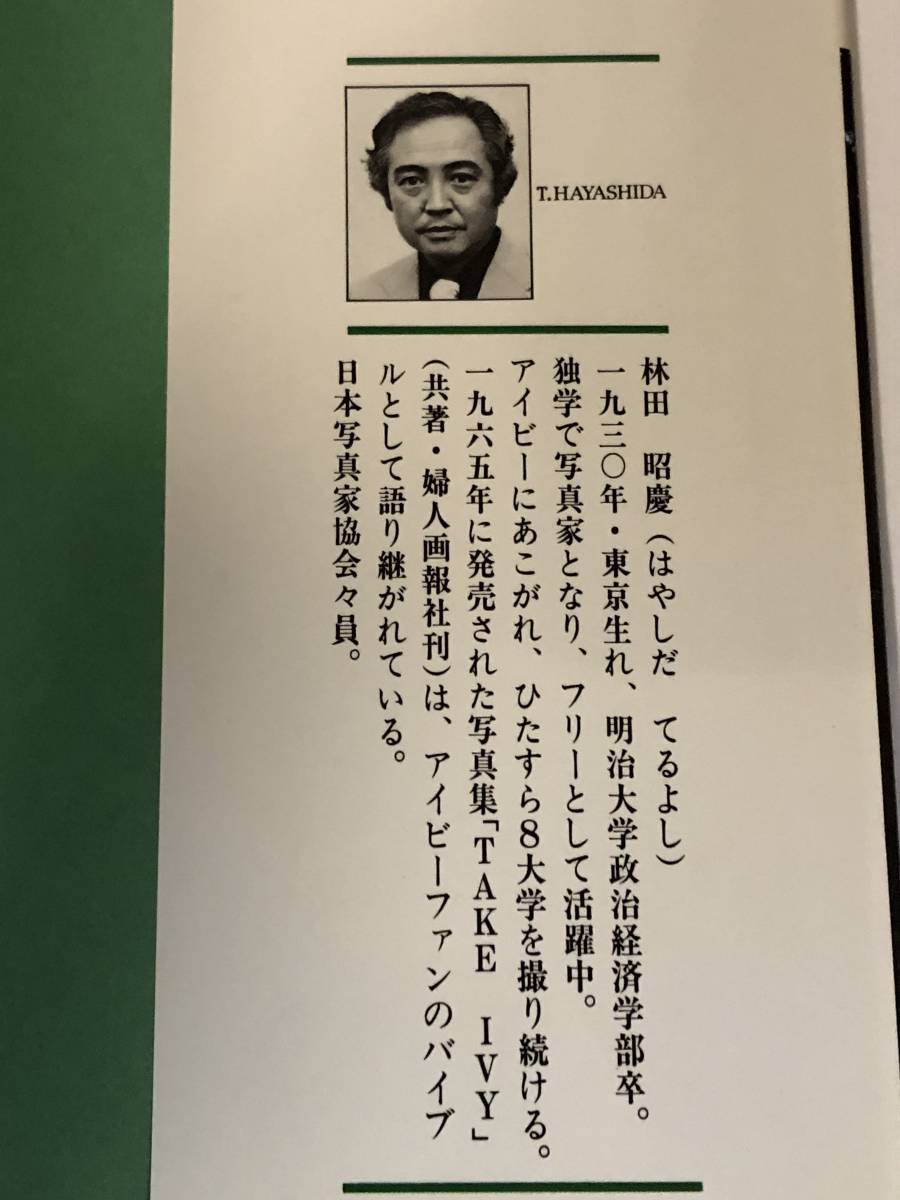 T.HAYASHIDA
林田　昭慶（はやしだ　てるよし）
一九三〇年・東京生れ、明治大学政治経済学部卒。
独学で写真家となり、フリーとして活躍中。
アイビーにあこがれ、ひたすら8大学を撮り続ける。
一九六五年に発売された写真集「TAKE　IVY」
（共著・婦人画報社刊）は、アイビーファンのバイブ
ルとして語り継がれている。
日本写真家協会々員。